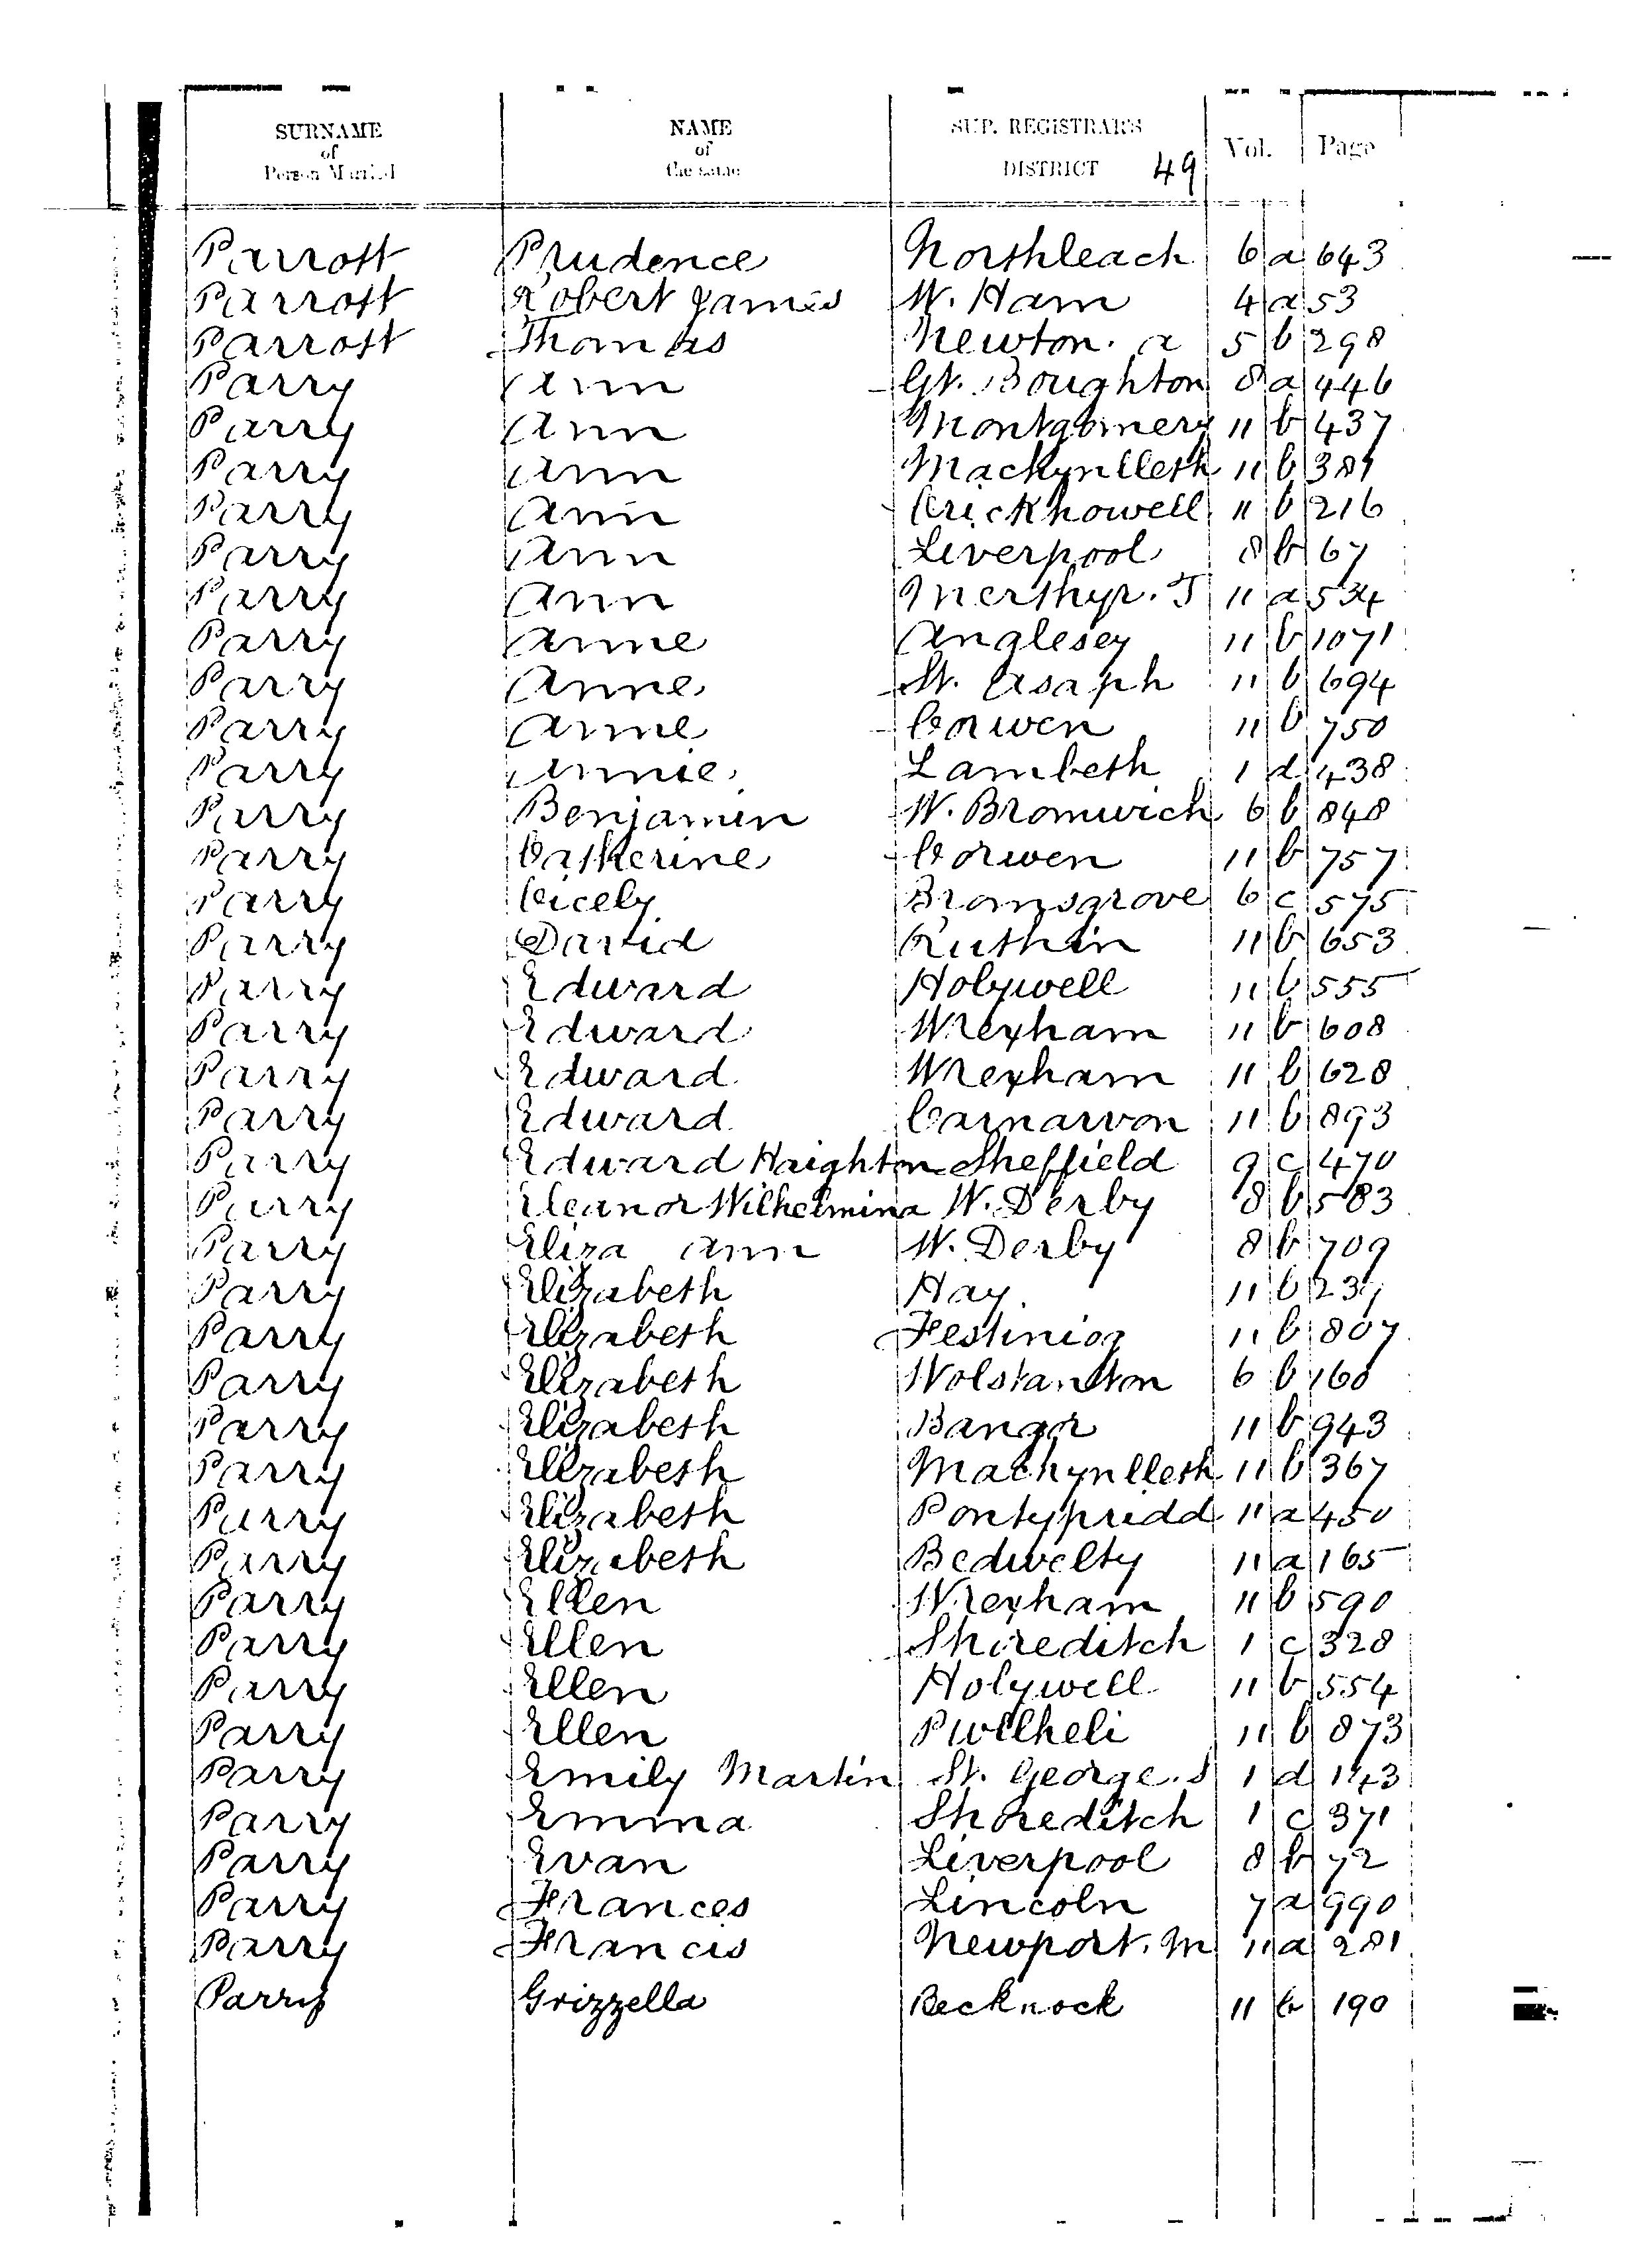 SURNAME of Person Married NAME of the same SUP. REGISTRAR'S DISTRICT 49 Vol. Page
Parrott Prudence Northleach 6 a 643
Parrott Robert James W. Ham 4 a 53
Parrott Thomas Newton. a 5 b 298
Parry Ann Gt. Boughton 8 a 446
Parry Ann Montgomery 11 b 437
Parry Ann Machynlleth 11 b 381
Parry Ann Crickhowell 11 b 216
Parry Ann Liverpool 8 b 67
Parry Ann Merthyr. T 11 a 534
Parry Anne Anglesey 11 b 1071
Parry Anne St. Asaph 11 b 694
Parry Anne Corwen 11 b 750
Parry Annie Lambeth 1 d 438
Parry Benjamin W. Bromwich 6 b 848
Parry Catherine Corwen 11 b 757
Parry Cicely Bromsgrove 6 c 575
Parry David Ruthin 11 b 653
Parry Edward Holywell 11 b 555
Parry Edward Wrexham 11 b 608
Parry Edward Wrexham 11 b 628
Parry Edward Carnarvon 11 b 893
Parry Edward Haighton Sheffield 9 c 470
Parry Eleanor Wilhelmina W. Derby 8 b 583
Parry Eliza Ann W. Derby 8 b 709
Parry Elizabeth Hay. 11 b
Parry Elizabeth Festiniog 11 b 807
Parry Elizabeth Wolstanton 6 b 168
Parry Elizabeth Bangor 11 b 943
Parry Elizabeth Machynlleth 11 b 367
Parry Elizabeth Pontypridd 11 a 450
Parry Elizabeth Bedwelty 11 a 165
Parry Ellen Wrexham 11 b 590
Parry Ellen Shoreditch 1 c 328
Parry Ellen Holywell 11 b 554
Parry Ellen Pwllheli 11 b 873
Parry Emily Martin St. George. S 1 d 143
Parry Emma Shoreditch 1 c 371
Parry Evan Liverpool 8 b 72
Parry Frances Lincoln 7 a 990
Parry Francis Newport. M 11 a 281
Parry Grizzella Brecknock 11 b 190